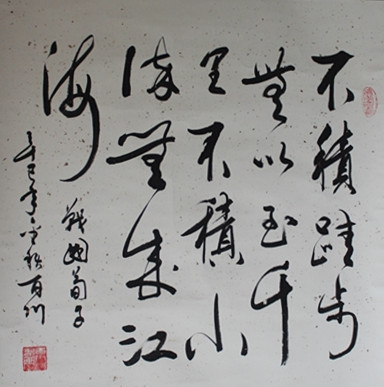 不積跬步
無以至千
里不積小
流無以成江
海
戰國荀子
辛巳年
百川